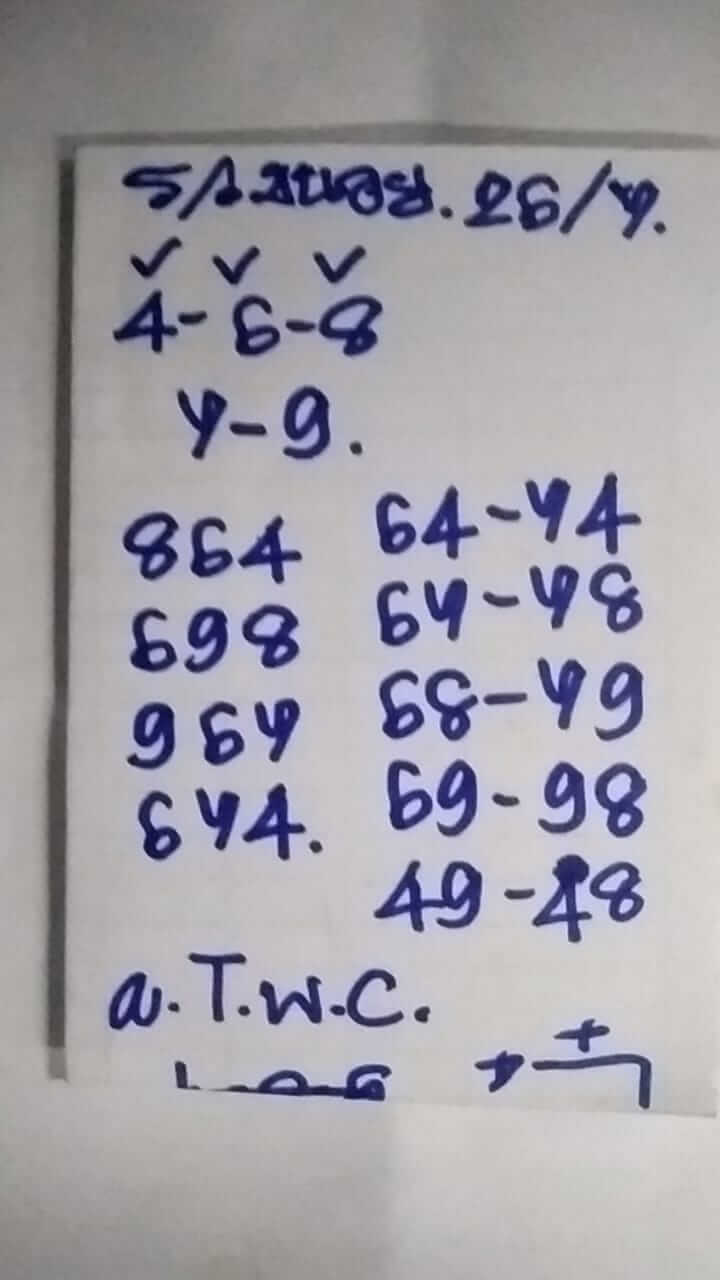 ฮานอย. 26/7.
4-6-8
7-9.
864 64-74
698 67-78
967 68-79
674. 69-98
49-48
a.T.W.C.